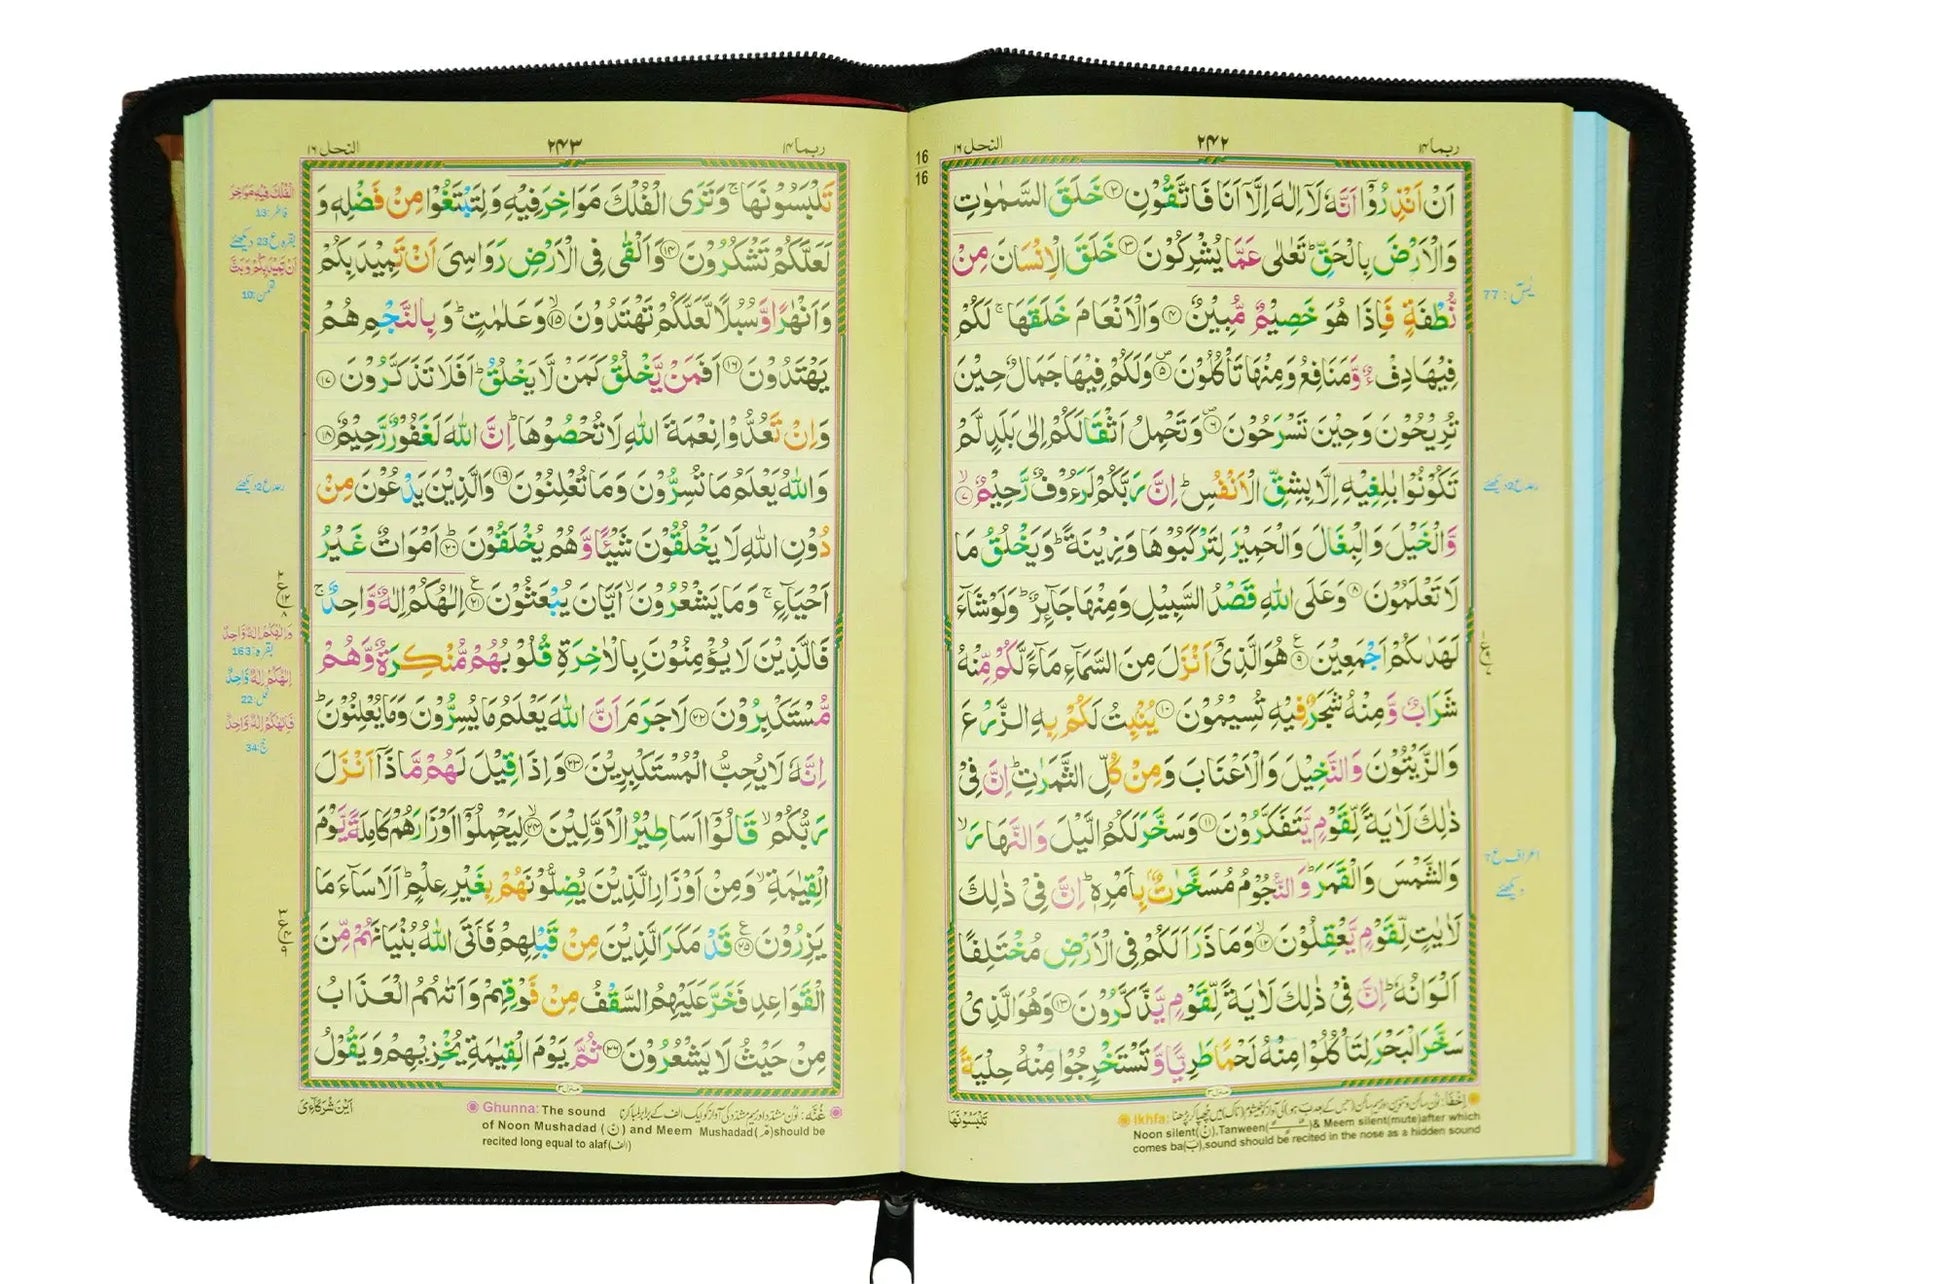 ربما ۱۴
۲۴۲
النحل ۱۶
16
16
اَنْ اَنْذِرُوْۤا اَنَّهٗ لَاۤ اِلٰهَ اِلَّاۤ اَنَا فَاتَّقُوْنِ ۝۲ خَلَقَ السَّمٰوٰتِ
وَالْاَرْضَ بِالْحَقِّ ؕ تَعٰلٰى عَمَّا يُشْرِكُوْنَ ۝۳ خَلَقَ الْاِنْسَانَ مِنْ
نُّطْفَةٍ فَاِذَا هُوَ خَصِيْمٌ مُّبِيْنٌ ۝۴ وَالْاَنْعَامَ خَلَقَهَا ۚ لَكُمْ
فِيْهَا دِفْءٌ وَّمَنَافِعُ وَمِنْهَا تَاْكُلُوْنَ ۝۵ وَلَكُمْ فِيْهَا جَمَالٌ حِيْنَ
تُرِيْحُوْنَ وَحِيْنَ تَسْرَحُوْنَ ۝۶ وَتَحْمِلُ اَثْقَالَكُمْ اِلٰى بَلَدٍ لَّمْ
تَكُوْنُوْا بٰلِغِيْهِ اِلَّا بِشِقِّ الْاَنْفُسِ ؕ اِنَّ رَبَّكُمْ لَرَءُوْفٌ رَّحِيْمٌ ۝۷
وَّالْخَيْلَ وَالْبِغَالَ وَالْحَمِيْرَ لِتَرْكَبُوْهَا وَزِيْنَةً ؕ وَيَخْلُقُ مَا
لَا تَعْلَمُوْنَ ۝۸ وَعَلَى اللّٰهِ قَصْدُ السَّبِيْلِ وَمِنْهَا جَآئِرٌ ؕ وَلَوْ شَآءَ
لَهَدٰىكُمْ اَجْمَعِيْنَ ۝۹ هُوَ الَّذِيْۤ اَنْزَلَ مِنَ السَّمَآءِ مَآءً لَّكُمْ مِّنْهُ
شَرَابٌ وَّمِنْهُ شَجَرٌ فِيْهِ تُسِيْمُوْنَ ۝۱۰ يُنْۢبِتُ لَكُمْ بِهِ الزَّرْعَ
وَالزَّيْتُوْنَ وَالنَّخِيْلَ وَالْاَعْنَابَ وَمِنْ كُلِّ الثَّمَرٰتِ ؕ اِنَّ فِيْ
ذٰلِكَ لَاٰيَةً لِّقَوْمٍ يَّتَفَكَّرُوْنَ ۝۱۱ وَسَخَّرَ لَكُمُ الَّيْلَ وَالنَّهَارَ ۙ
وَالشَّمْسَ وَالْقَمَرَ ؕ وَالنُّجُوْمُ مُسَخَّرٰتٌۢ بِاَمْرِهٖ ؕ اِنَّ فِيْ ذٰلِكَ
لَاٰيٰتٍ لِّقَوْمٍ يَّعْقِلُوْنَ ۝۱۲ وَمَا ذَرَاَ لَكُمْ فِى الْاَرْضِ مُخْتَلِفًا
اَلْوَانُهٗ ؕ اِنَّ فِيْ ذٰلِكَ لَاٰيَةً لِّقَوْمٍ يَّذَّكَّرُوْنَ ۝۱۳ وَهُوَ الَّذِيْ
سَخَّرَ الْبَحْرَ لِتَاْكُلُوْا مِنْهُ لَحْمًا طَرِيًّا وَّتَسْتَخْرِجُوْا مِنْهُ حِلْيَةً
يٰسٓ: 77
اعراف ع 7
دیکھئے
منزل ۳
Ikhfa:
Noon silent(نْ),Tanween(ـًـٍـٌ)& Meem silent(mute)after which
comes ba(ب),sound should be recited in the nose as a hidden sound
تَلْبَسُوْنَهَا
ربما ۱۴
۲۴۳
النحل ۱۶
تَلْبَسُوْنَهَا ۚ وَتَرَى الْفُلْكَ مَوَاخِرَ فِيْهِ وَلِتَبْتَغُوْا مِنْ فَضْلِهٖ وَ
لَعَلَّكُمْ تَشْكُرُوْنَ ۝۱۴ وَاَلْقٰى فِى الْاَرْضِ رَوَاسِيَ اَنْ تَمِيْدَ بِكُمْ
وَاَنْهٰرًا وَّسُبُلًا لَّعَلَّكُمْ تَهْتَدُوْنَ ۝۱۵ وَعَلٰمٰتٍ ؕ وَبِالنَّجْمِ هُمْ
يَهْتَدُوْنَ ۝۱۶ اَفَمَنْ يَّخْلُقُ كَمَنْ لَّا يَخْلُقُ ؕ اَفَلَا تَذَكَّرُوْنَ ۝۱۷
وَاِنْ تَعُدُّوْا نِعْمَةَ اللّٰهِ لَا تُحْصُوْهَا ؕ اِنَّ اللّٰهَ لَغَفُوْرٌ رَّحِيْمٌ ۝۱۸
وَاللّٰهُ يَعْلَمُ مَا تُسِرُّوْنَ وَمَا تُعْلِنُوْنَ ۝۱۹ وَالَّذِيْنَ يَدْعُوْنَ مِنْ
دُوْنِ اللّٰهِ لَا يَخْلُقُوْنَ شَيْـًٔا وَّهُمْ يُخْلَقُوْنَ ۝۲۰ اَمْوَاتٌ غَيْرُ
اَحْيَآءٍ ۚ وَمَا يَشْعُرُوْنَ ۙ اَيَّانَ يُبْعَثُوْنَ ۝۲۱ اِلٰهُكُمْ اِلٰهٌ وَّاحِدٌ ۚ
فَالَّذِيْنَ لَا يُؤْمِنُوْنَ بِالْاٰخِرَةِ قُلُوْبُهُمْ مُّنْكِرَةٌ وَّهُمْ
مُّسْتَكْبِرُوْنَ ۝۲۲ لَا جَرَمَ اَنَّ اللّٰهَ يَعْلَمُ مَا يُسِرُّوْنَ وَمَا يُعْلِنُوْنَ ؕ
اِنَّهٗ لَا يُحِبُّ الْمُسْتَكْبِرِيْنَ ۝۲۳ وَاِذَا قِيْلَ لَهُمْ مَّاذَاۤ اَنْزَلَ
رَبُّكُمْ ۙ قَالُوْۤا اَسَاطِيْرُ الْاَوَّلِيْنَ ۝۲۴ لِيَحْمِلُوْۤا اَوْزَارَهُمْ كَامِلَةً يَّوْمَ
الْقِيٰمَةِ ۙ وَمِنْ اَوْزَارِ الَّذِيْنَ يُضِلُّوْنَهُمْ بِغَيْرِ عِلْمٍ ؕ اَلَا سَآءَ مَا
يَزِرُوْنَ ۝۲۵ قَدْ مَكَرَ الَّذِيْنَ مِنْ قَبْلِهِمْ فَاَتَى اللّٰهُ بُنْيَانَهُمْ مِّنَ
الْقَوَاعِدِ فَخَرَّ عَلَيْهِمُ السَّقْفُ مِنْ فَوْقِهِمْ وَاَتٰىهُمُ الْعَذَابُ
مِنْ حَيْثُ لَا يَشْعُرُوْنَ ۝۲۶ ثُمَّ يَوْمَ الْقِيٰمَةِ يُخْزِيْهِمْ وَيَقُوْلُ
الْفُلْكَ فِيْهِ مَوَاخِرَ
فاطر: 13
بقره ع 23 دیکھئے
اَنْ تَمِيْدَ بِكُمْ وَبَثَّ
لقمن: 10
رعد ع 2 دیکھئے
وَاِلٰهُكُمْ اِلٰهٌ وَّاحِدٌ
بقره: 163
اِلٰهُكُمْ اِلٰهٌ وَّاحِدٌ
نحل: 22
فَاِلٰهُكُمْ اِلٰهٌ وَّاحِدٌ
حج: 34
منزل ۳
Ghunna: The sound
of Noon Mushadad (نّ) and Meem Mushadad (مّ)should be
recited long equal to alaf(الف)
اَيْنَ شُرَكَآءِيَ